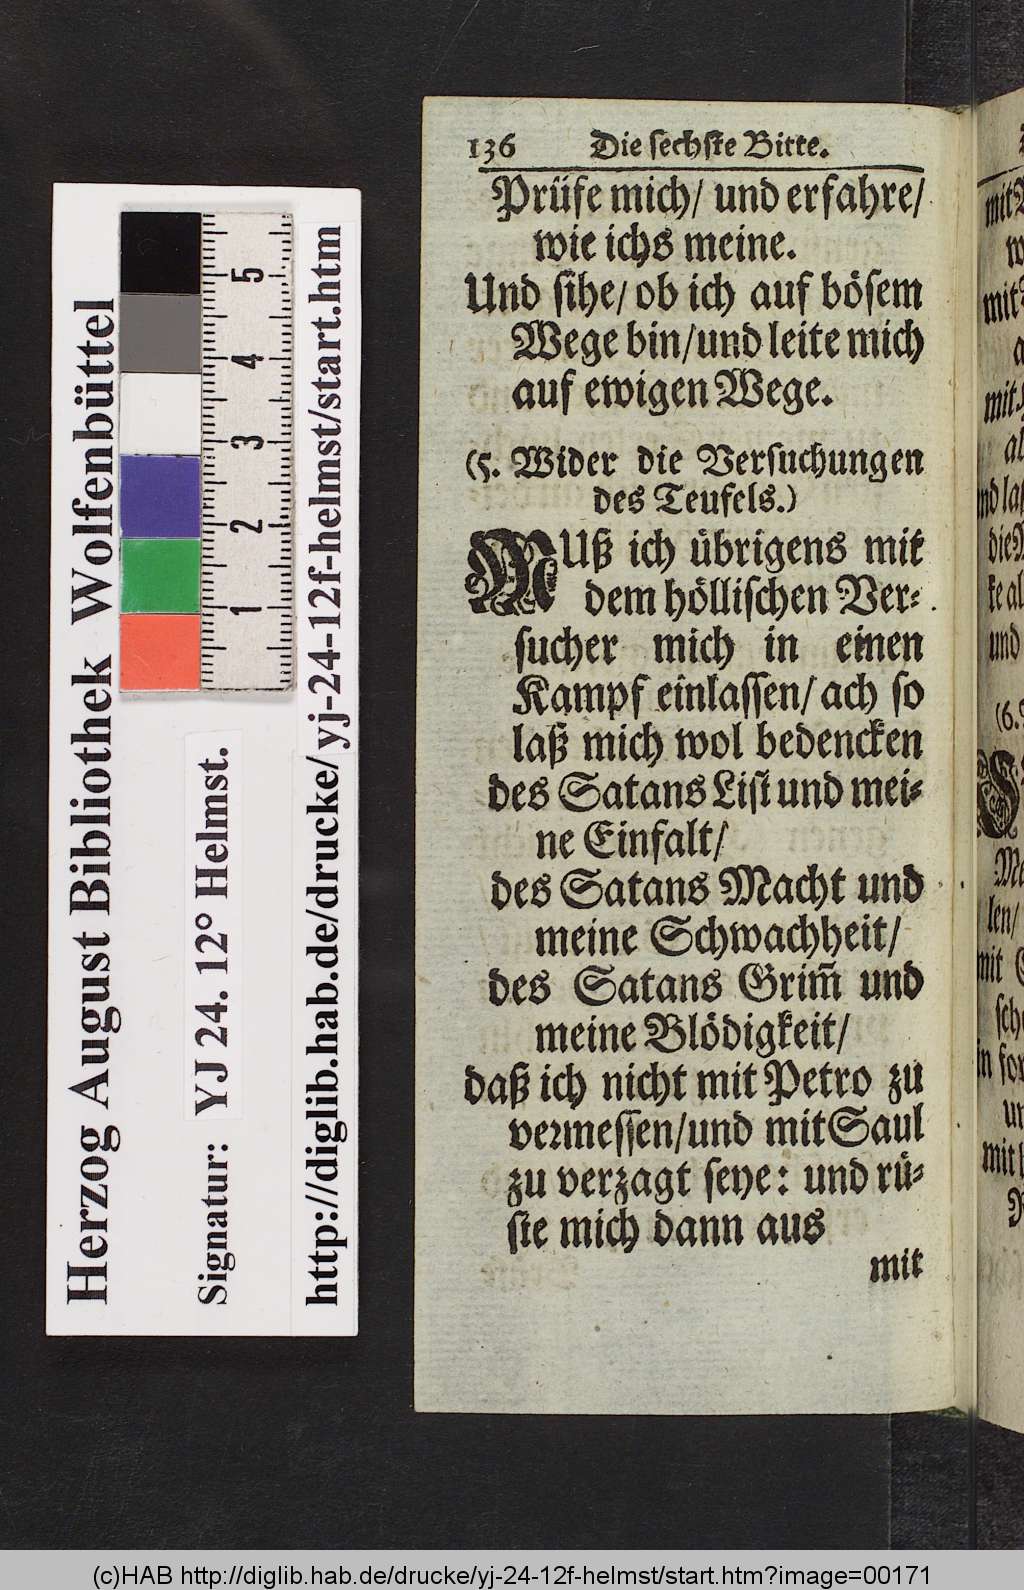 136 Die sechste Bitte.
Prüfe mich/ und erfahre/
wie ichs meine.
Und sihe/ ob ich auf bösem
Wege bin/und leite mich
auf ewigen Wege.
(5. Wider die Versuchungen
des Teufels.)
MUß ich übrigens mit
dem höllischen Ver-
sucher mich in einen
Kampf einlassen/ ach so
laß mich wol bedencken
des Satans List und mei-
ne Einfalt/
des Satans Macht und
meine Schwachheit/
des Satans Grim̃ und
meine Blödigkeit/
daß ich nicht mit Petro zu
vermessen/und mit Saul
zu verzagt seye: und rü-
ste mich dann aus
mit
Herzog August Bibliothek Wolfenbüttel
Signatur: YJ 24. 12° Helmst.
http://diglib.hab.de/drucke/yj-24-12f-helmst/start.htm
1 2 3 4 5
mit
w
mit
a
mit
al
nd laß
die
ke al
und
(6.
Me
len/
mit
sche
in
un
mit
(c)HAB http://diglib.hab.de/drucke/yj-24-12f-helmst/start.htm?image=00171